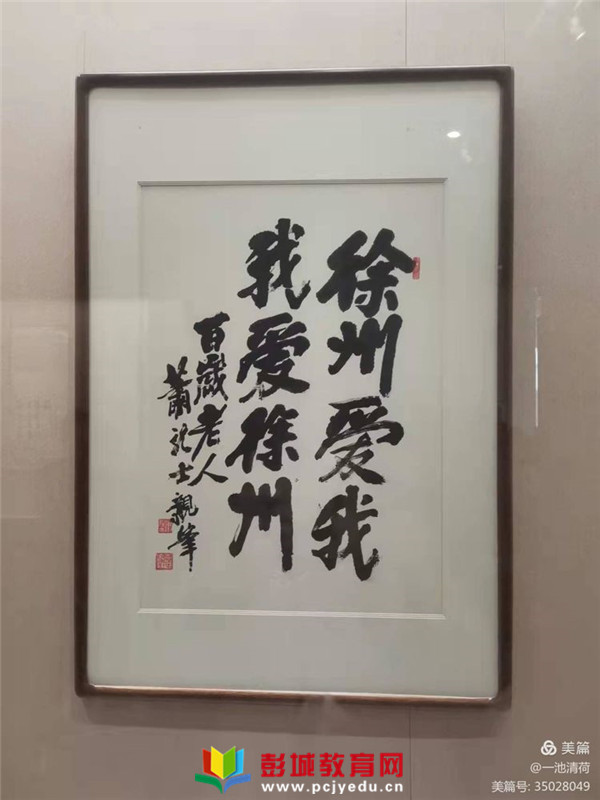 徐州爱我
我爱徐州
百歲老人
蕭龍士親筆
彭城教育网
www.pcjyedu.cn
美篇
@一池清荷
美篇号: 35028049